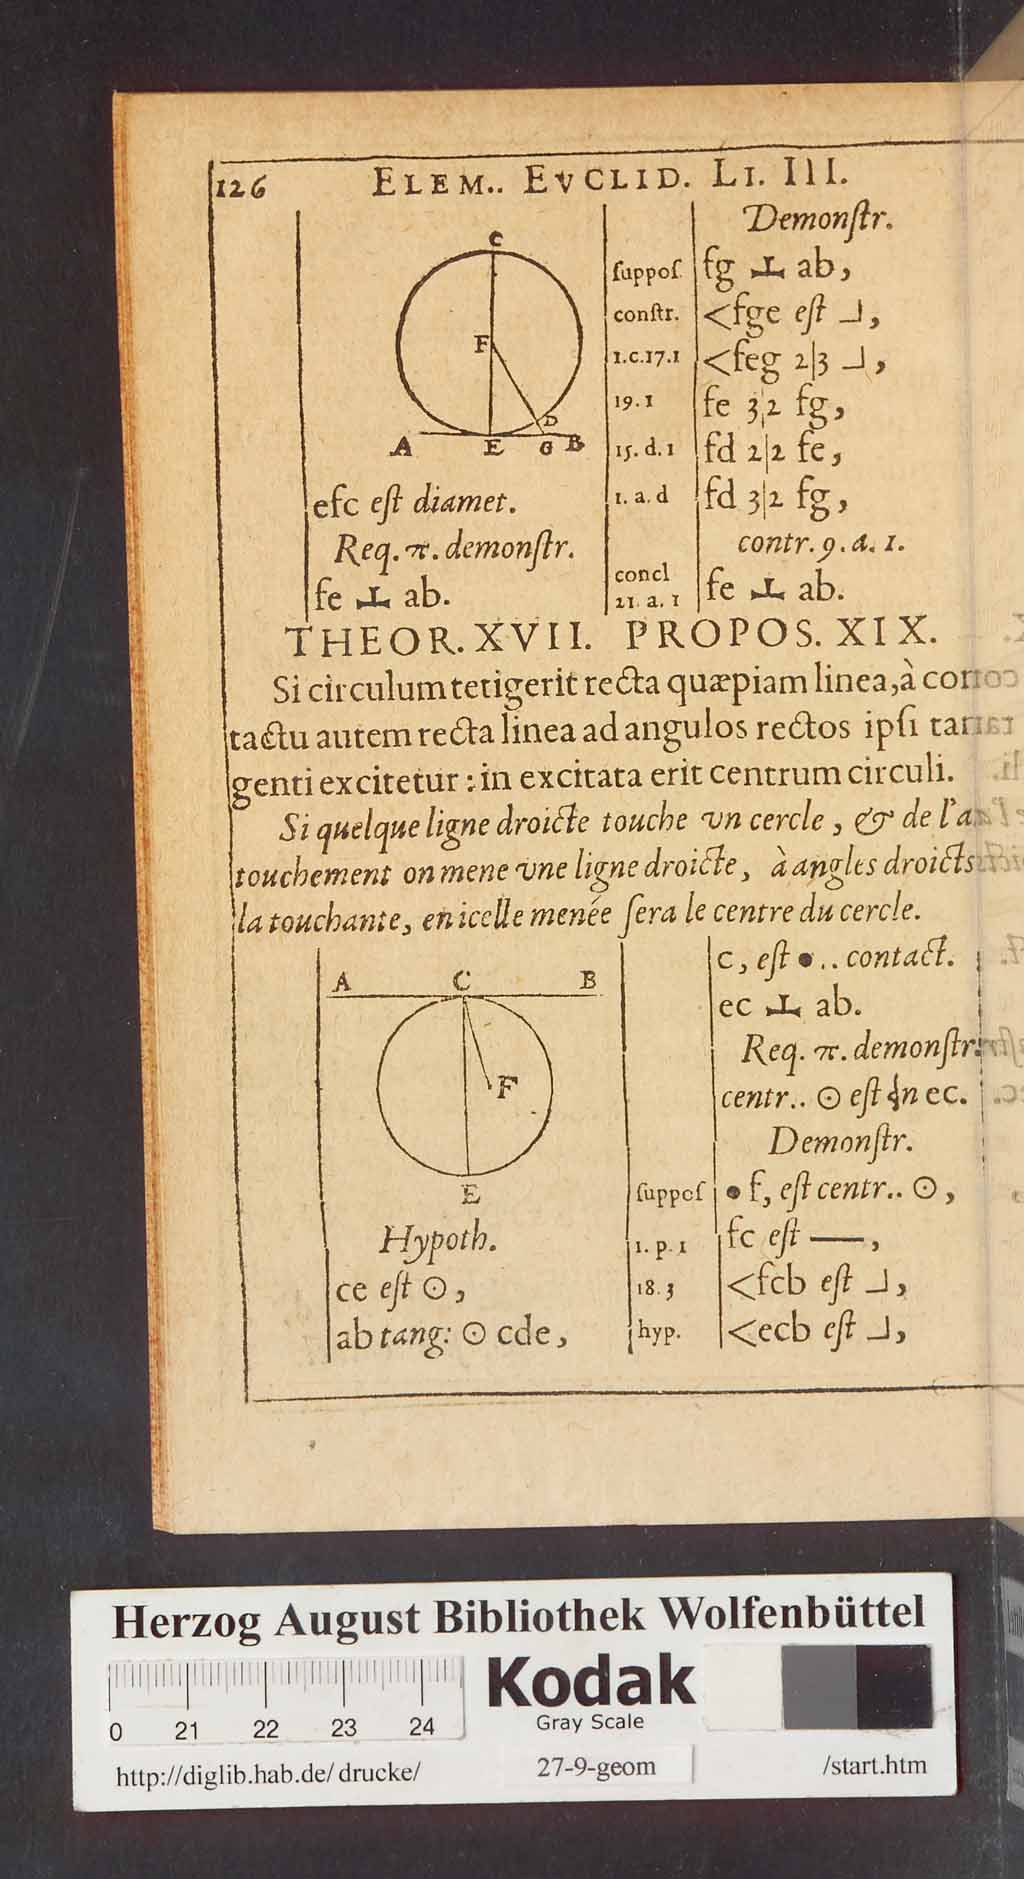 126 ELEM.. EVCLID. LI. III.
C
F
D
A E G B
efc eſt diamet.
Req. π. demonſtr.
fe ⊥ ab.
Demonſtr.
ſuppoſ. fg ⊥ ab,
conſtr. <fge eſt ⅃,
1.c.17.1 <feg 2|3 ⅃,
19.1 fe 3|2 fg,
15.d.1 fd 2|2 fe,
1.a.d fd 3|2 fg,
contr. 9. a. 1.
concl
21. a. 1 fe ⊥ ab.
THEOR. XVII. PROPOS. XIX.
Si circulum tetigerit recta quæpiam linea, à con
tactu autem recta linea ad angulos rectos ipſi tan
genti excitetur : in excitata erit centrum circuli.
Si quelque ligne droicte touche vn cercle, & de l'a
touchement on mene vne ligne droicte, à angles droicts
la touchante, en icelle menée ſera le centre du cercle.
A C B
F
E
Hypoth.
ce eſt ⊙,
ab tang: ⊙ cde,
c, eſt •.. contact.
ec ⊥ ab.
Req. π. demonſtr.
centr.. ⊙ eſt in ec.
Demonſtr.
ſuppoſ • f, eſt centr.. ⊙,
1. p. 1 fc eſt —,
18. 3 <fcb eſt ⅃,
hyp. <ecb eſt ⅃,
Herzog August Bibliothek Wolfenbüttel
0 21 22 23 24
Kodak
Gray Scale
http://diglib.hab.de/drucke/ 27-9-geom /start.htm